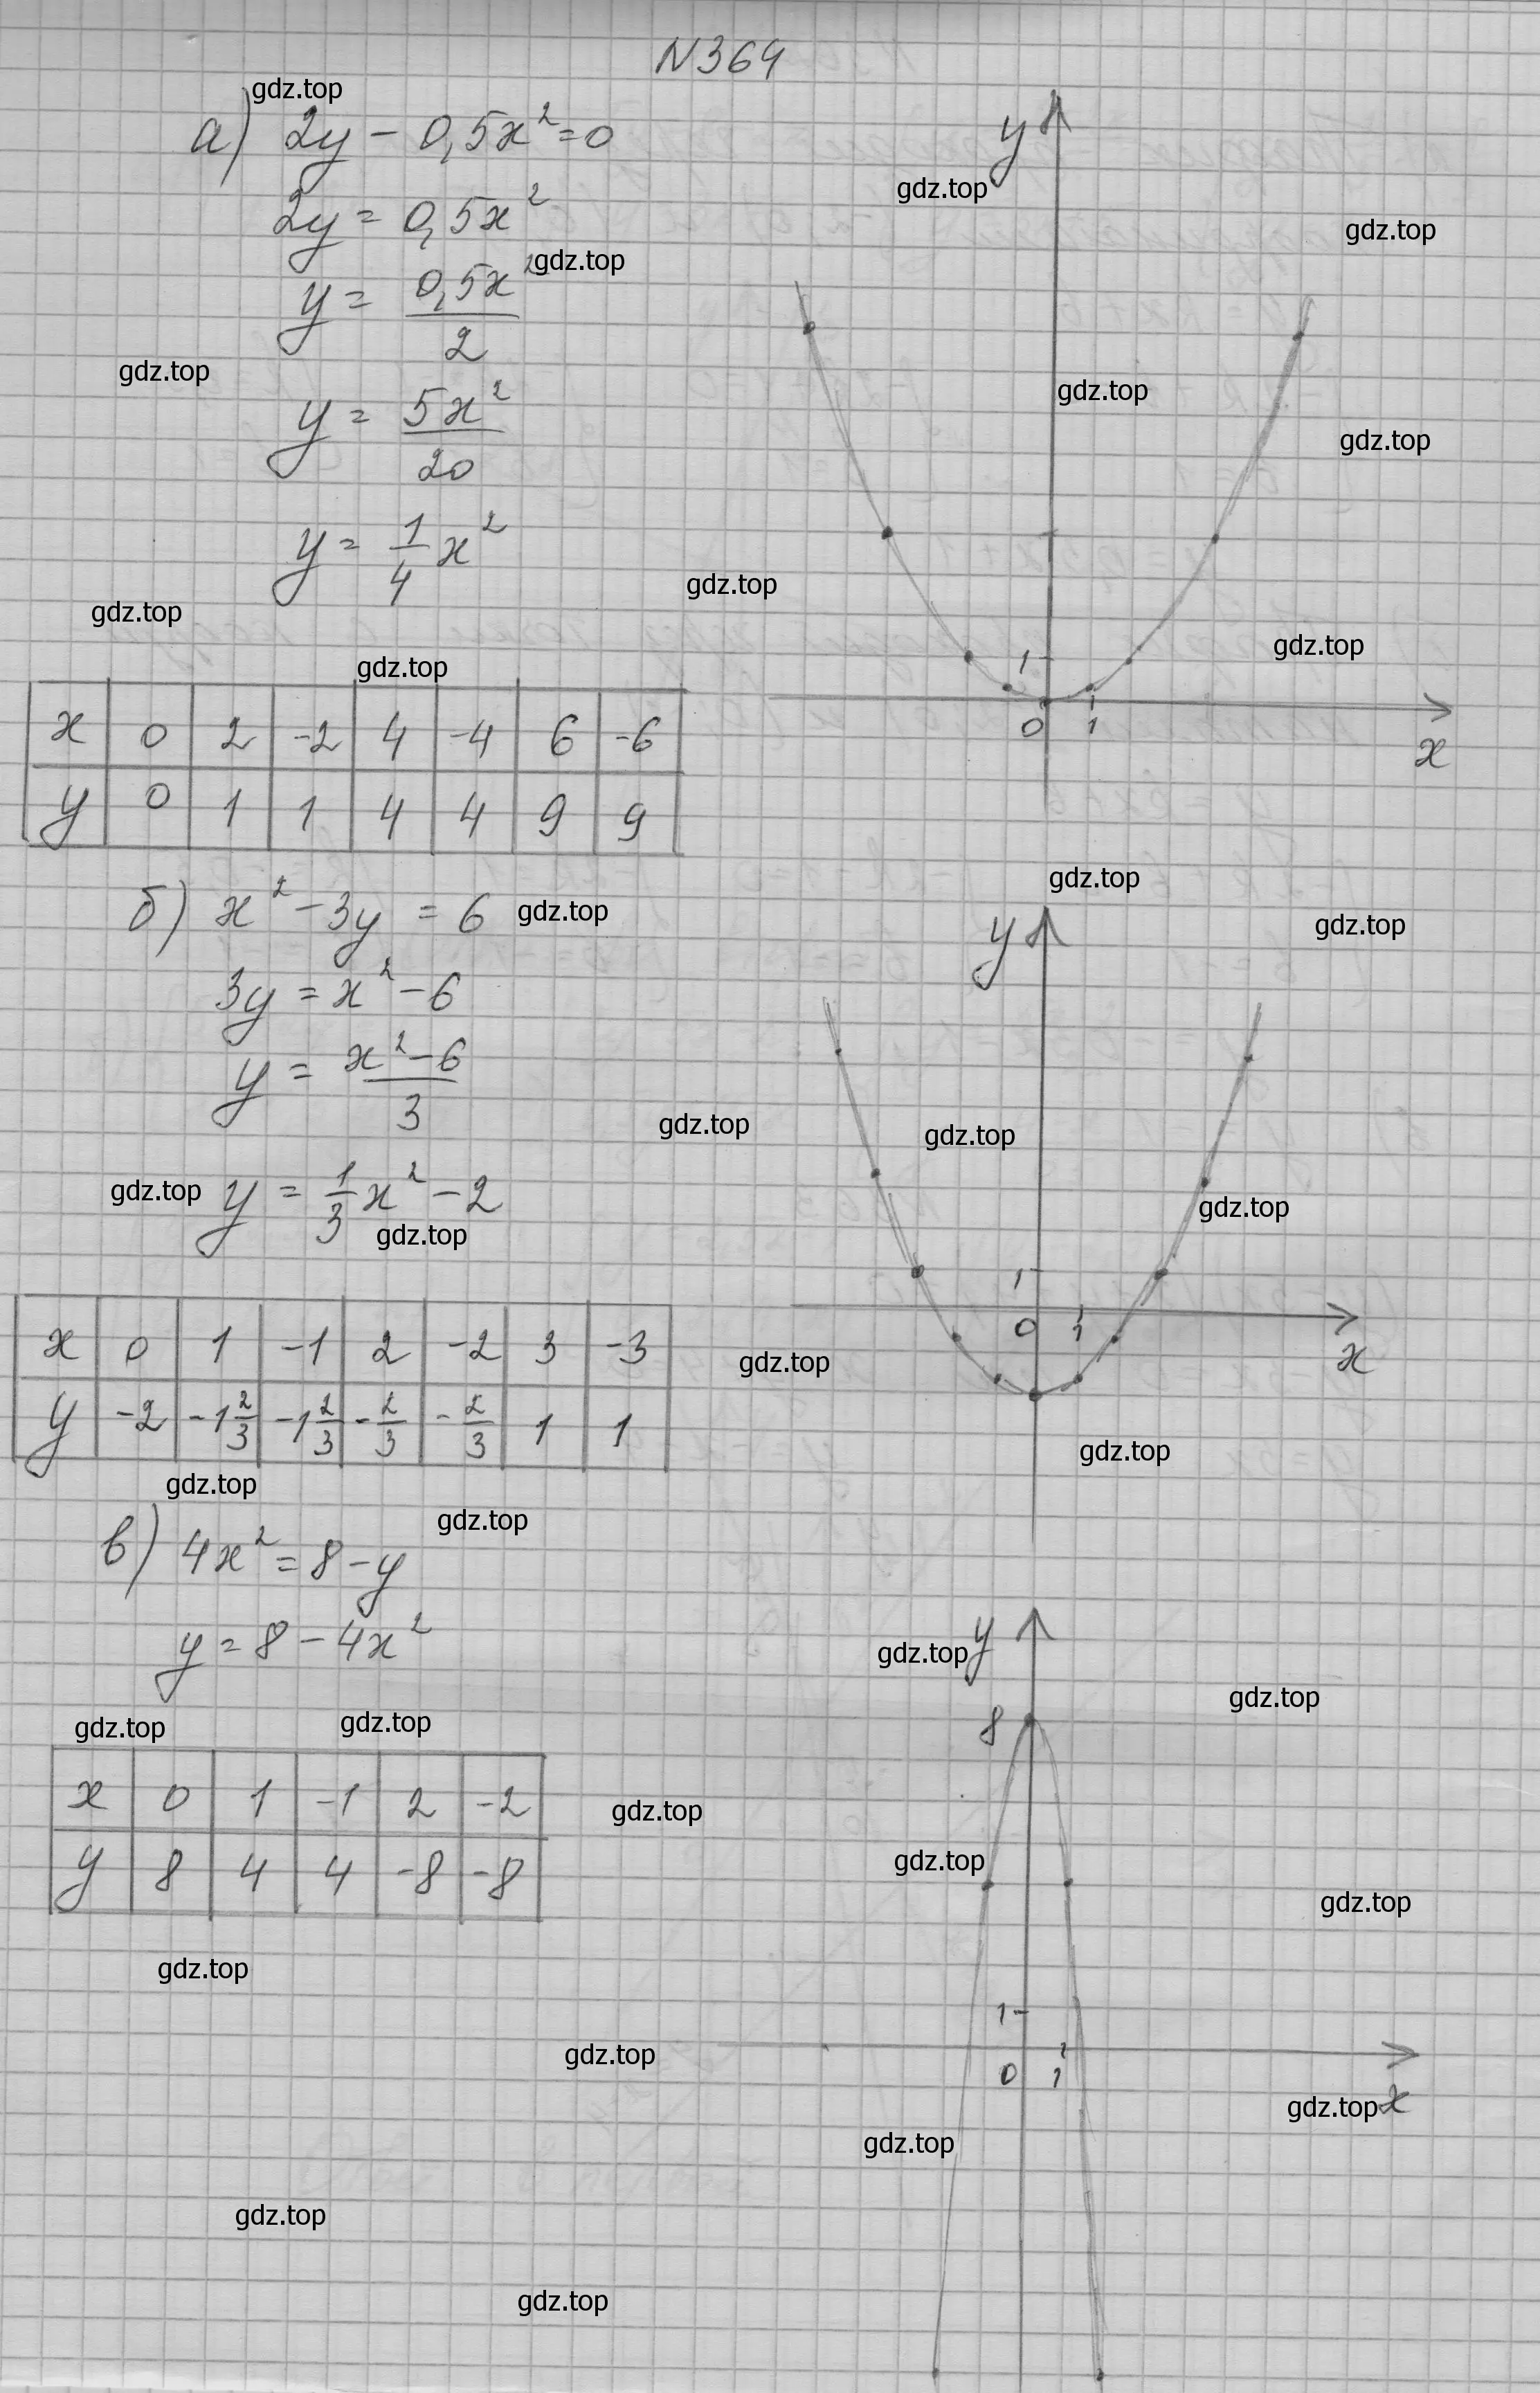 N364
gdz.top
а) 2y - 0,5x² = 0
2y = 0,5x²
y = 0,5x²/2 gdz.top
gdz.top
y = 5x²/20
y = 1/4 x²
gdz.top
gdz.top
x 0 2 -2 4 -4 6 -6
y 0 1 1 4 4 9 9
y
gdz.top
gdz.top
gdz.top
gdz.top
gdz.top
gdz.top
1
0 1
x
б) x² - 3y = 6 gdz.top
3y = x² - 6
y = x² - 6/3
gdz.top y = 1/3 x² - 2
gdz.top
x 0 1 -1 2 -2 3 -3
y -2 -1 2/3 -1 2/3 -2/3 -2/3 1 1
gdz.top
gdz.top
gdz.top
y
gdz.top
gdz.top
gdz.top
1
0 1
x
gdz.top
gdz.top
gdz.top
в) 4x² = 8 - y
y = 8 - 4x²
gdz.top gdz.top
x 0 1 -1 2 -2
y 8 4 4 -8 -8
gdz.top
gdz.top y
gdz.top
8
gdz.top
gdz.top
gdz.top
1
0 1
gdz.top x
gdz.top
gdz.top
gdz.top
gdz.top